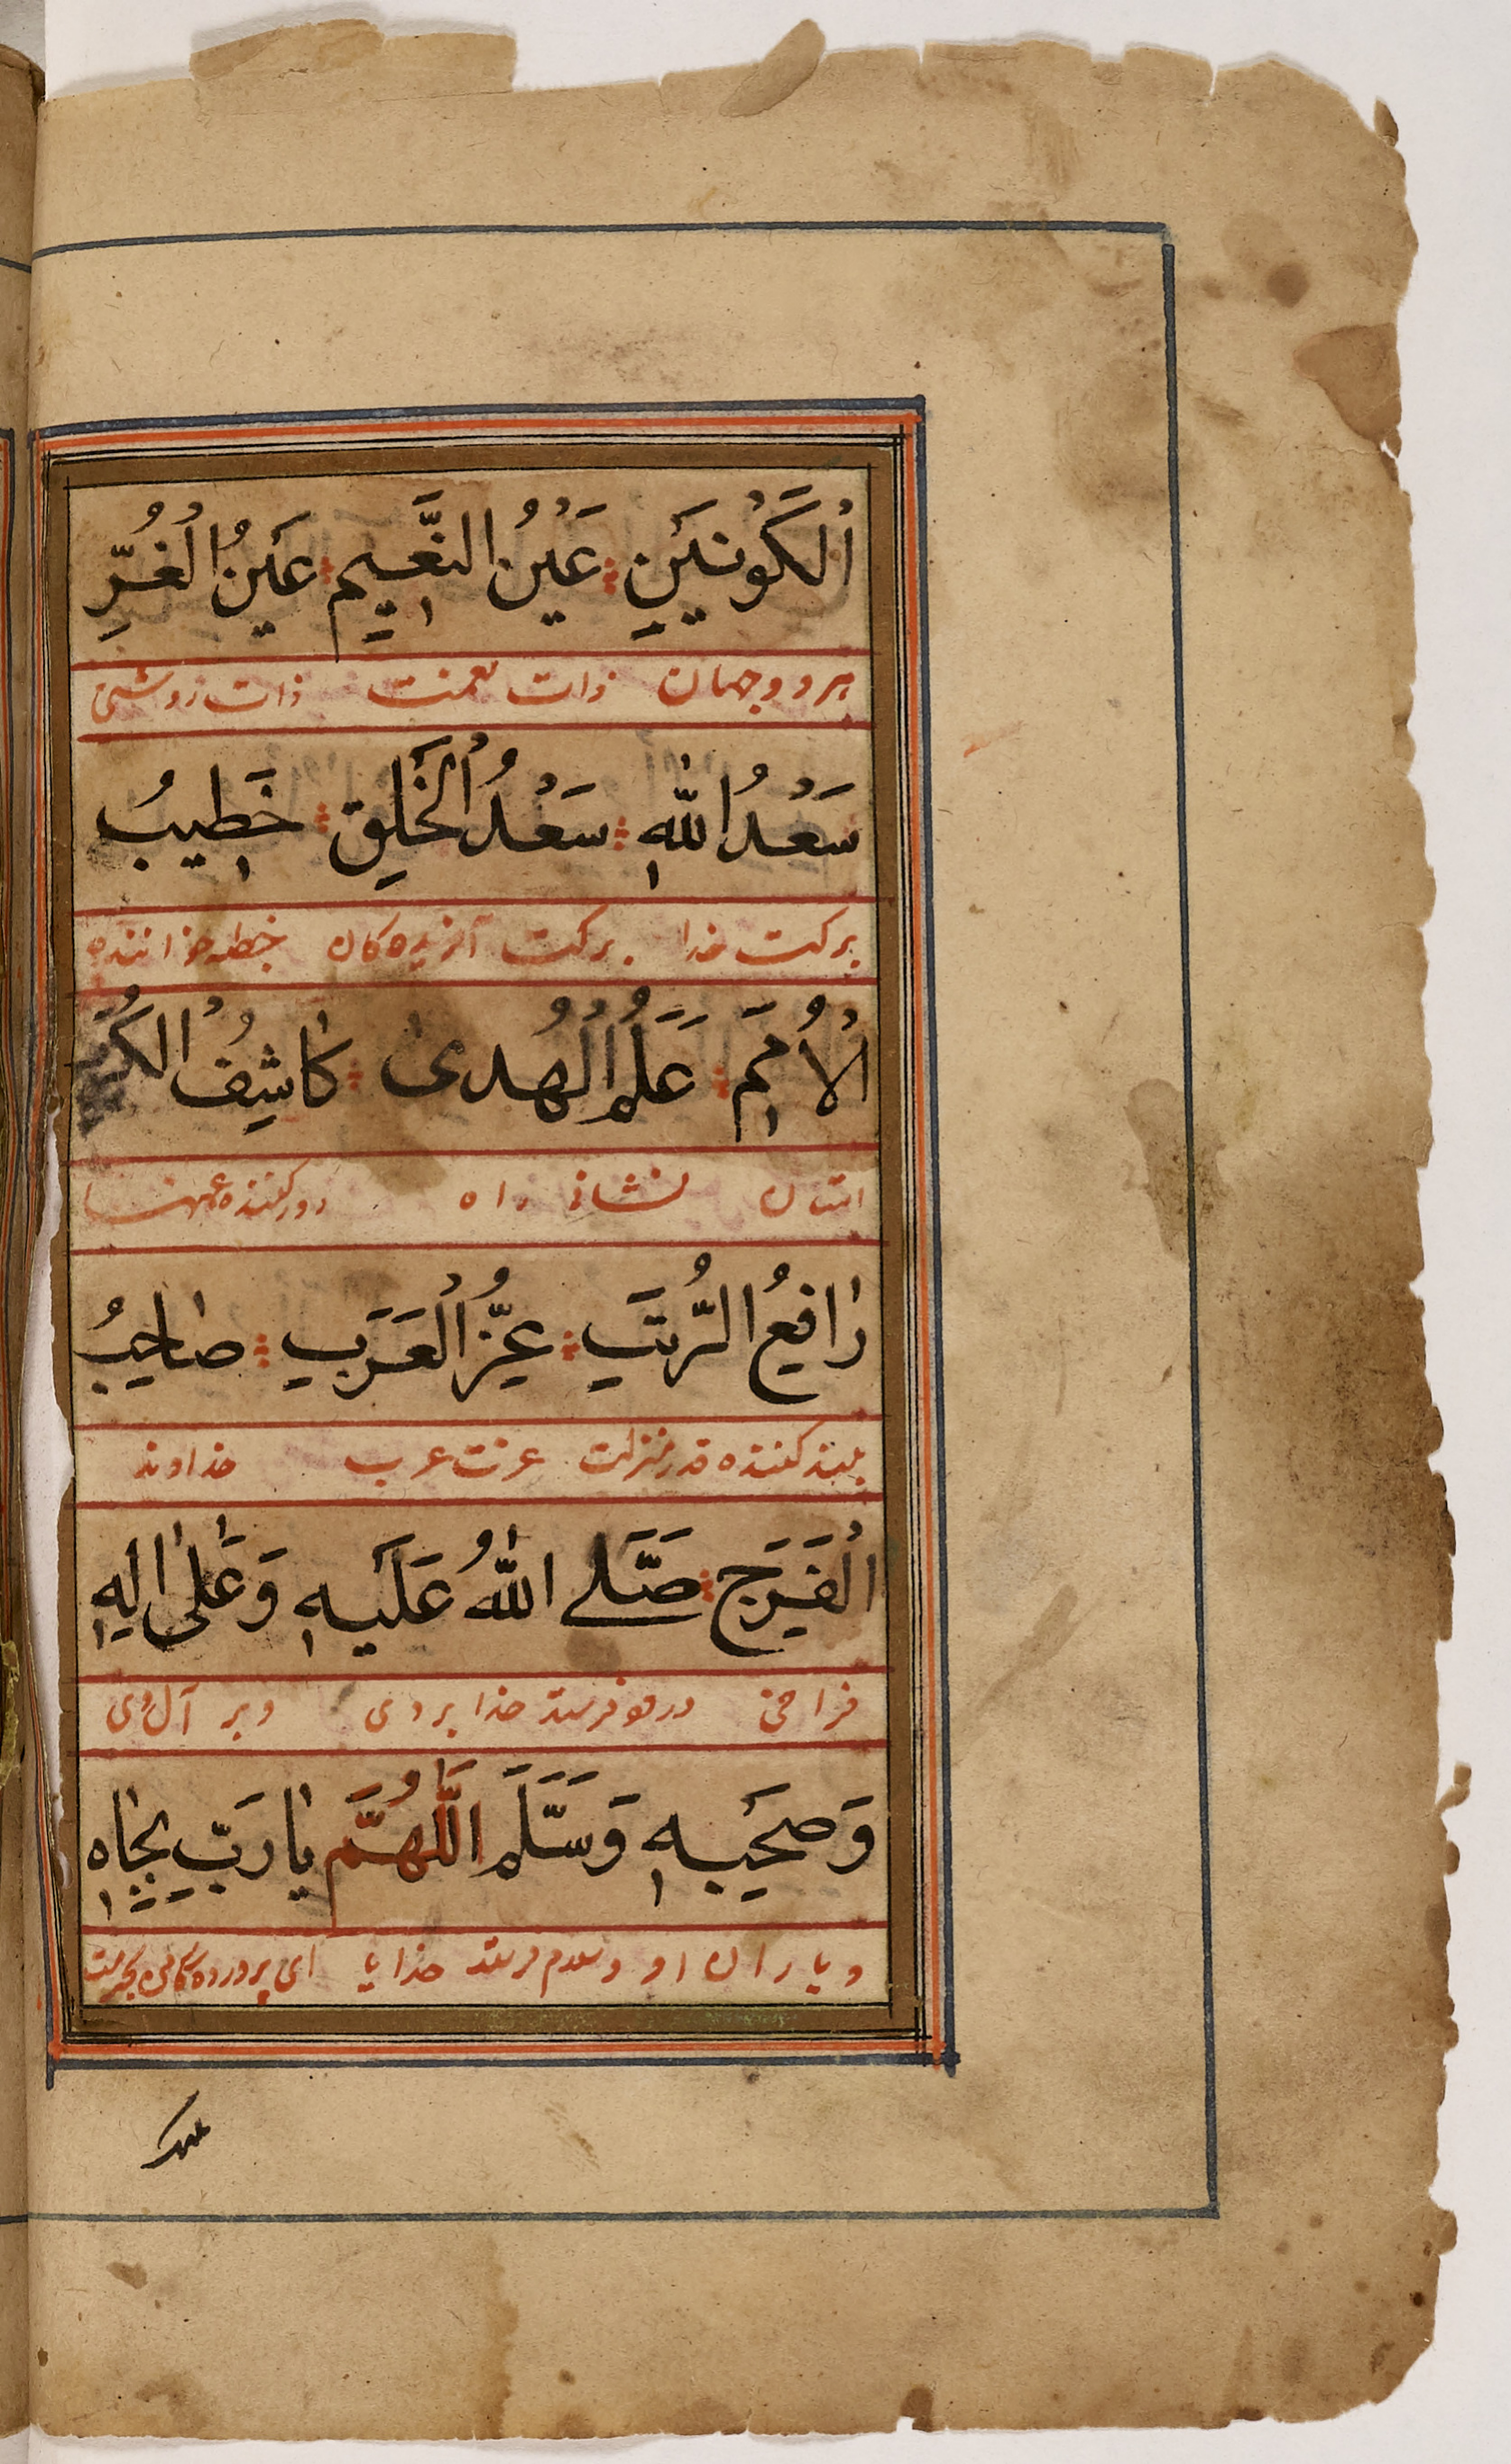 اُلْكَوْنَيْنِ عَيْنُ النَّعِيمِ عَيْنُ الْغُرِّ
هر دو جهان ذات نعمت ذات روشنی
سَعْدُ اللّٰهِ سَعْدُ الْخَلْقِ خَطِيبُ
برکت خدا برکت آفریده کان خطبه خواننده
الْاُمَمِ عَلَمُ الْهُدىٰ كَاشِفُ الْكُرَبِ
امتان نشان راه دور کننده غمها
رَافِعُ الرُّتَبِ عِزُّ الْعَرَبِ صَاحِبُ
بلند کننده قدر منزلت عزت عرب خداوند
الْفَرَجِ صَلَّے اللّٰهُ عَلَيْهِ وَعَلىٰ اٰلِهٖ
فراخی درود فرستد خدا بر وی و بر آل وی
وَصَحْبِهٖ وَسَلَّمَ اَللّٰهُمَّ يَا رَبِّ بِجَاهِ
و یاران او و سلام فرستد خدایا ای پروردگار من بحرمت